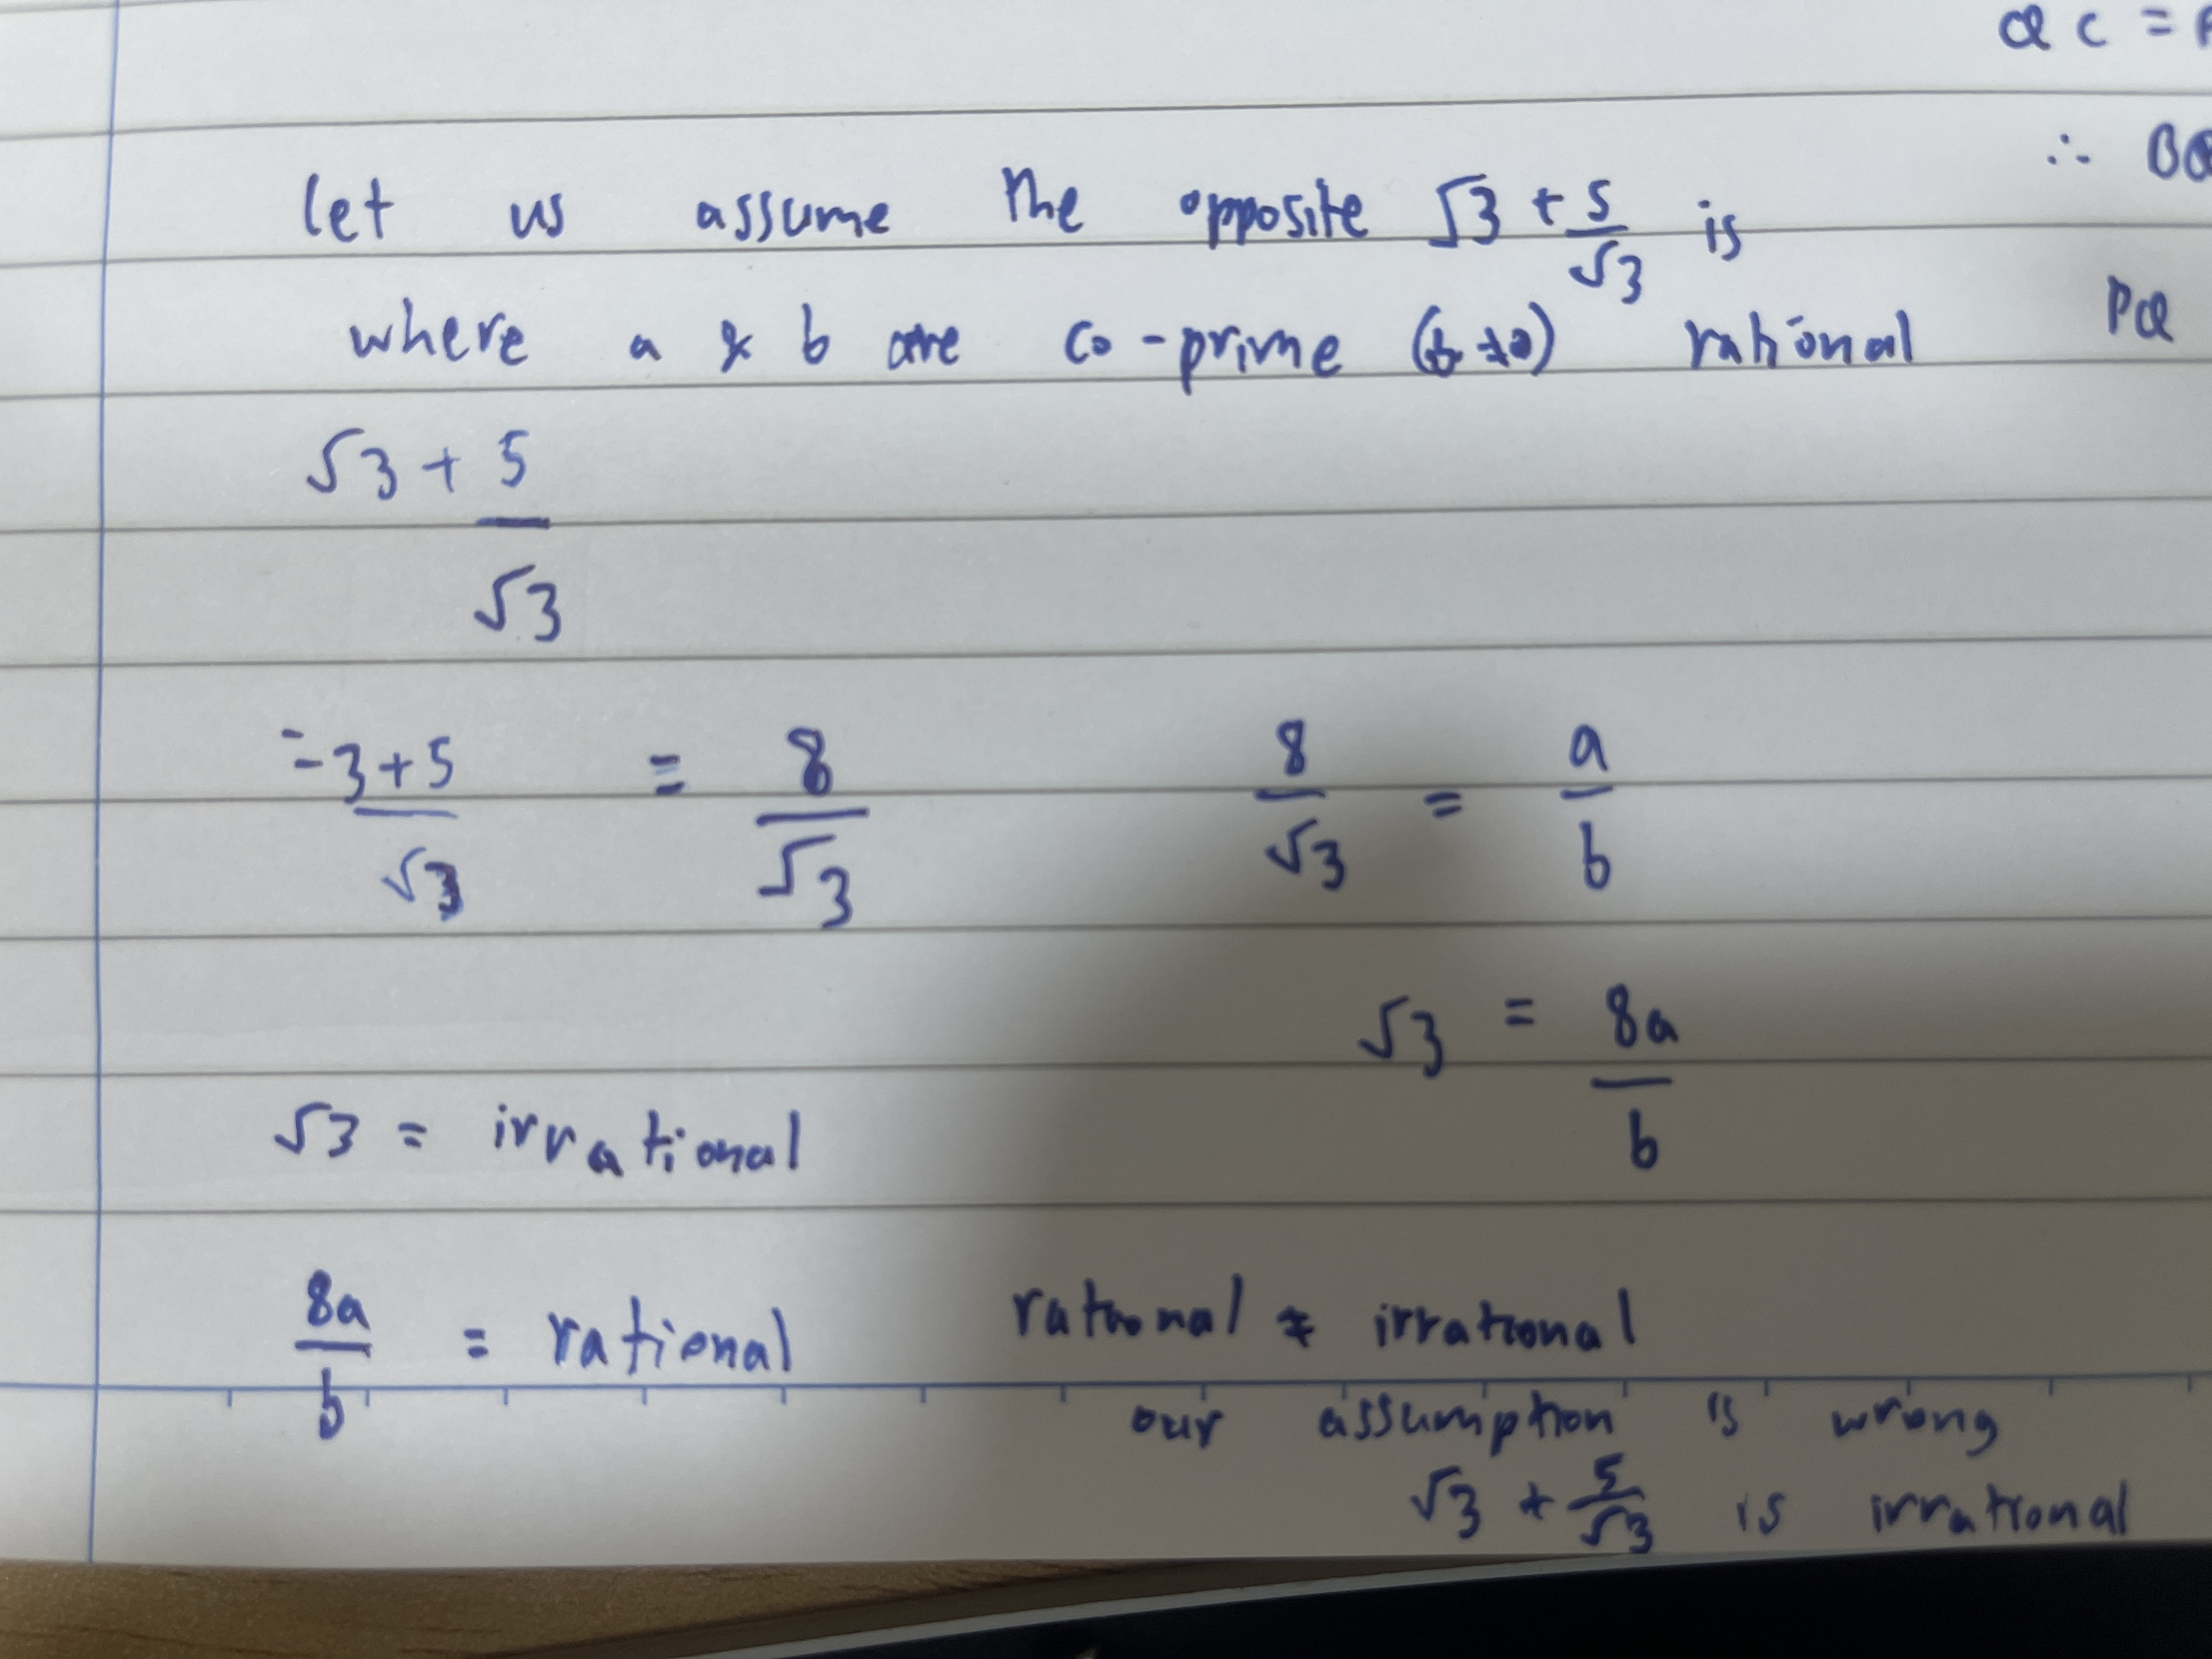 QC =
∴ BQ
let us assume the opposite √3 + 5/√3 is
where a & b are co-prime (b ≠ 0) rational
PQ
√3 + 5/√3
= 3+5/√3 = 8/√3
8/√3 = a/b
√3 = 8a/b
√3 = irrational
8a/b = rational
rational ≠ irrational
our assumption is wrong
√3 + 5/√3 is irrational